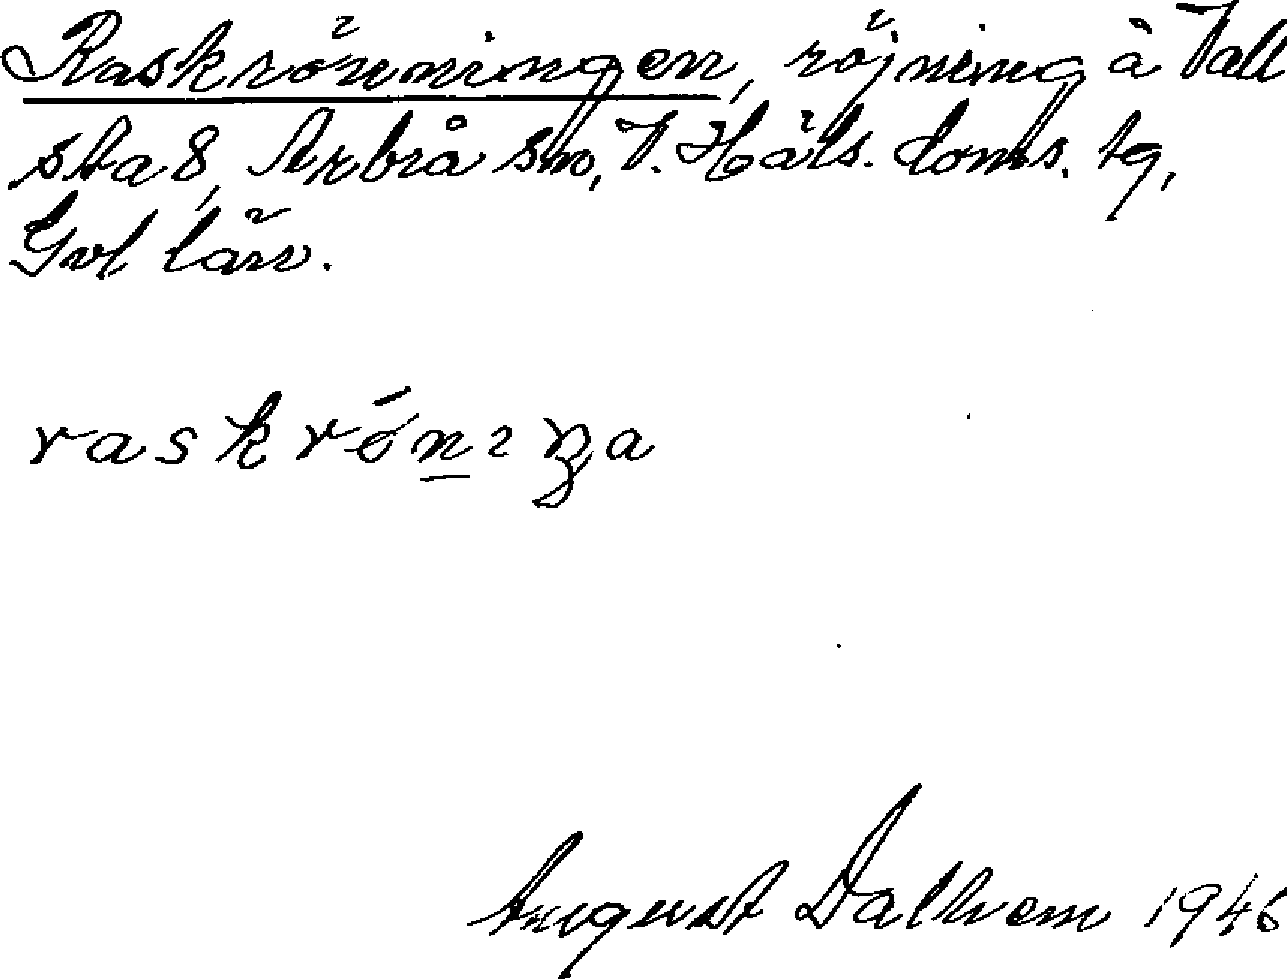 Raskrönningen, röjning å Vall
sta 8, Arbrå sn, V. Häls. doms. tg,
Gvl län.
raskrón̲ıŋa
August Dalhem 1946